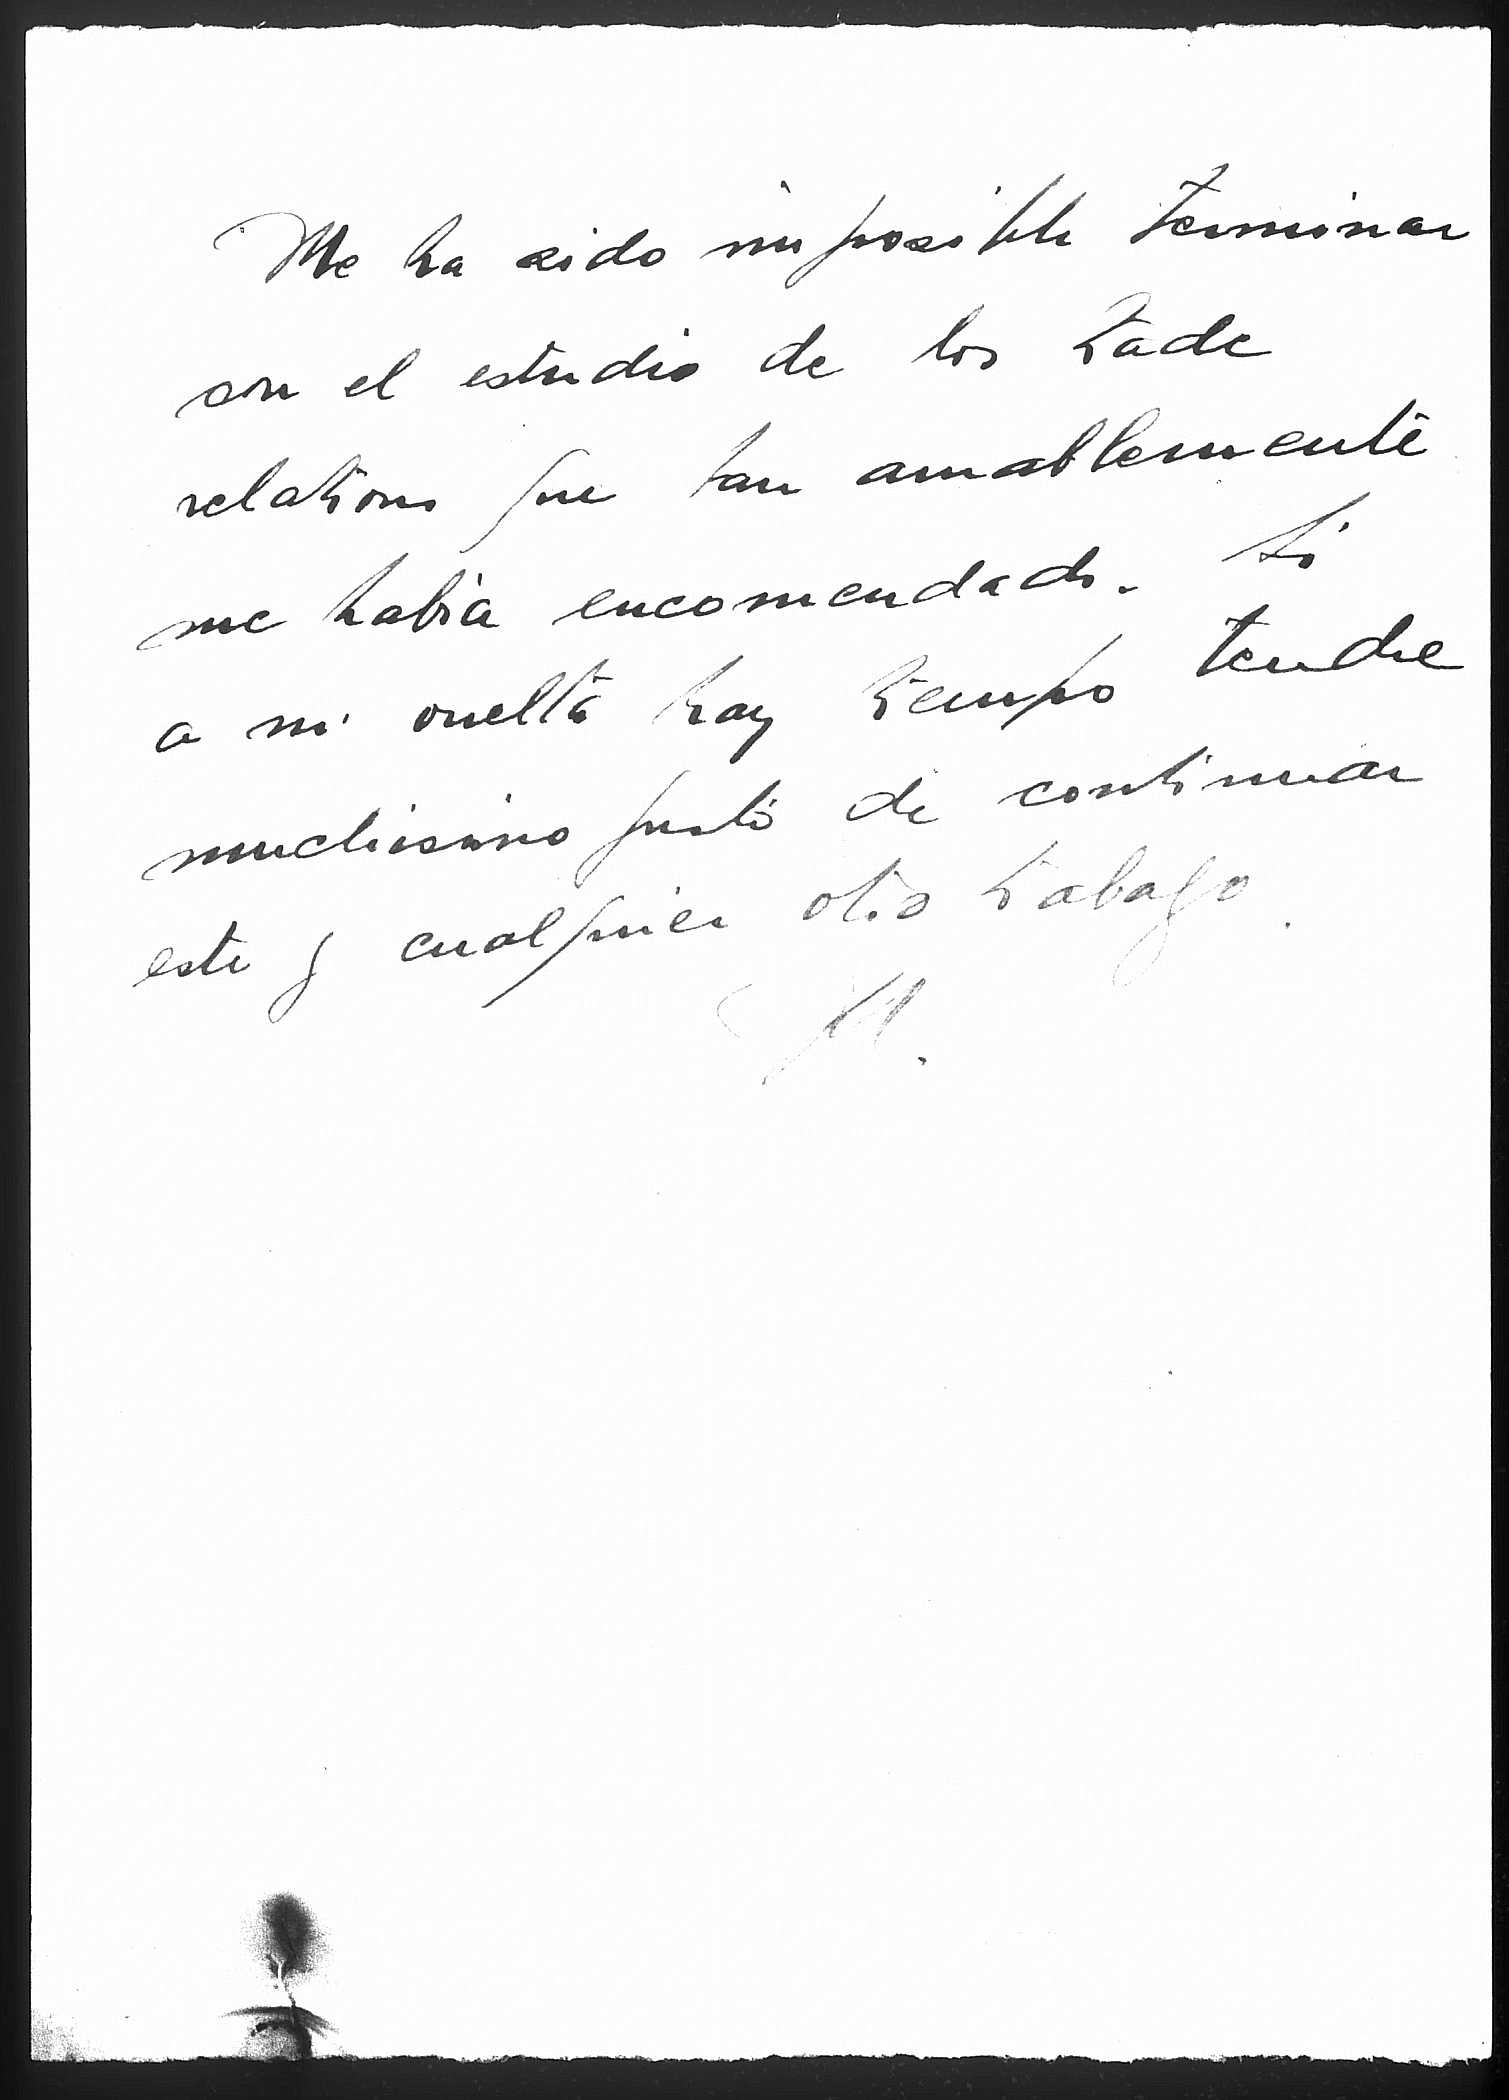 Me ha sido imposible terminar
con el estudio de los trade
relations que tan amablemente
me habia encomendado. Si
a mi vuelta hay tiempo tendre
muchisimo gusto de continuar
este y cualquier otro trabajo.
M.